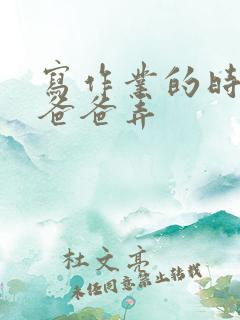 寫作業的時
爸爸弄
杜文亮
未經同意禁止轉載